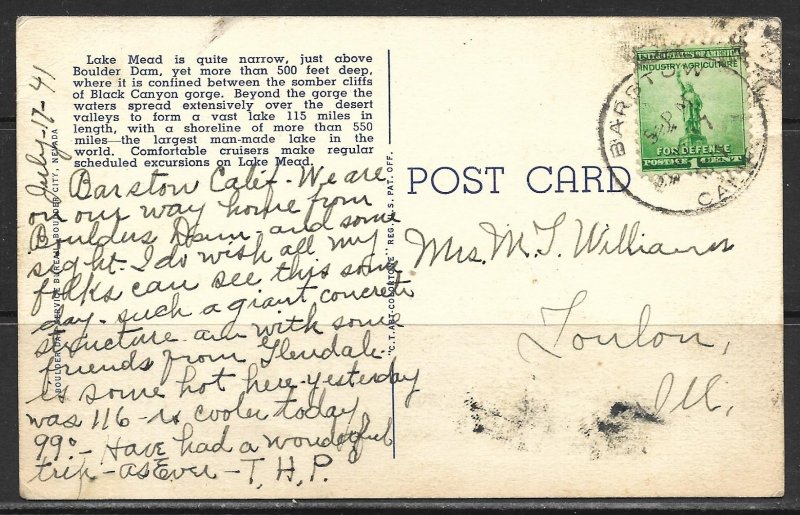 Lake Mead is quite narrow, just above
Boulder Dam, yet more than 500 feet deep,
where it is confined between the somber cliffs
of Black Canyon gorge. Beyond the gorge the
waters spread extensively over the desert
valleys to form a vast lake 115 miles in
length, with a shoreline of more than 550
miles—the largest man-made lake in the
world. Comfortable cruisers make regular
scheduled excursions on Lake Mead.
July-17-41
Barstow Calif-We are
on our way home from
Boulder Dam-and some
sight-I do wish all my
folks can see this some
day-such a giant concrete
structure am with some
friends from Glendale-
is some hot here-yesterday
was 116-is cooler today
99°-Have had a wonderful
trip-as Ever-T.H.P.
BOULDER DAM SERVICE BUREAU, BOULDER CITY, NEVADA
"C.T. ART-COLORTONE" REG. U.S. PAT. OFF.
POST CARD
UNITED STATES OF AMERICA
INDUSTRY AGRICULTURE
FOR DEFENSE
POSTAGE 1 CENT
BARSTOW
CALIF
Mrs. M. T. Williams
Toulon,
Ill.